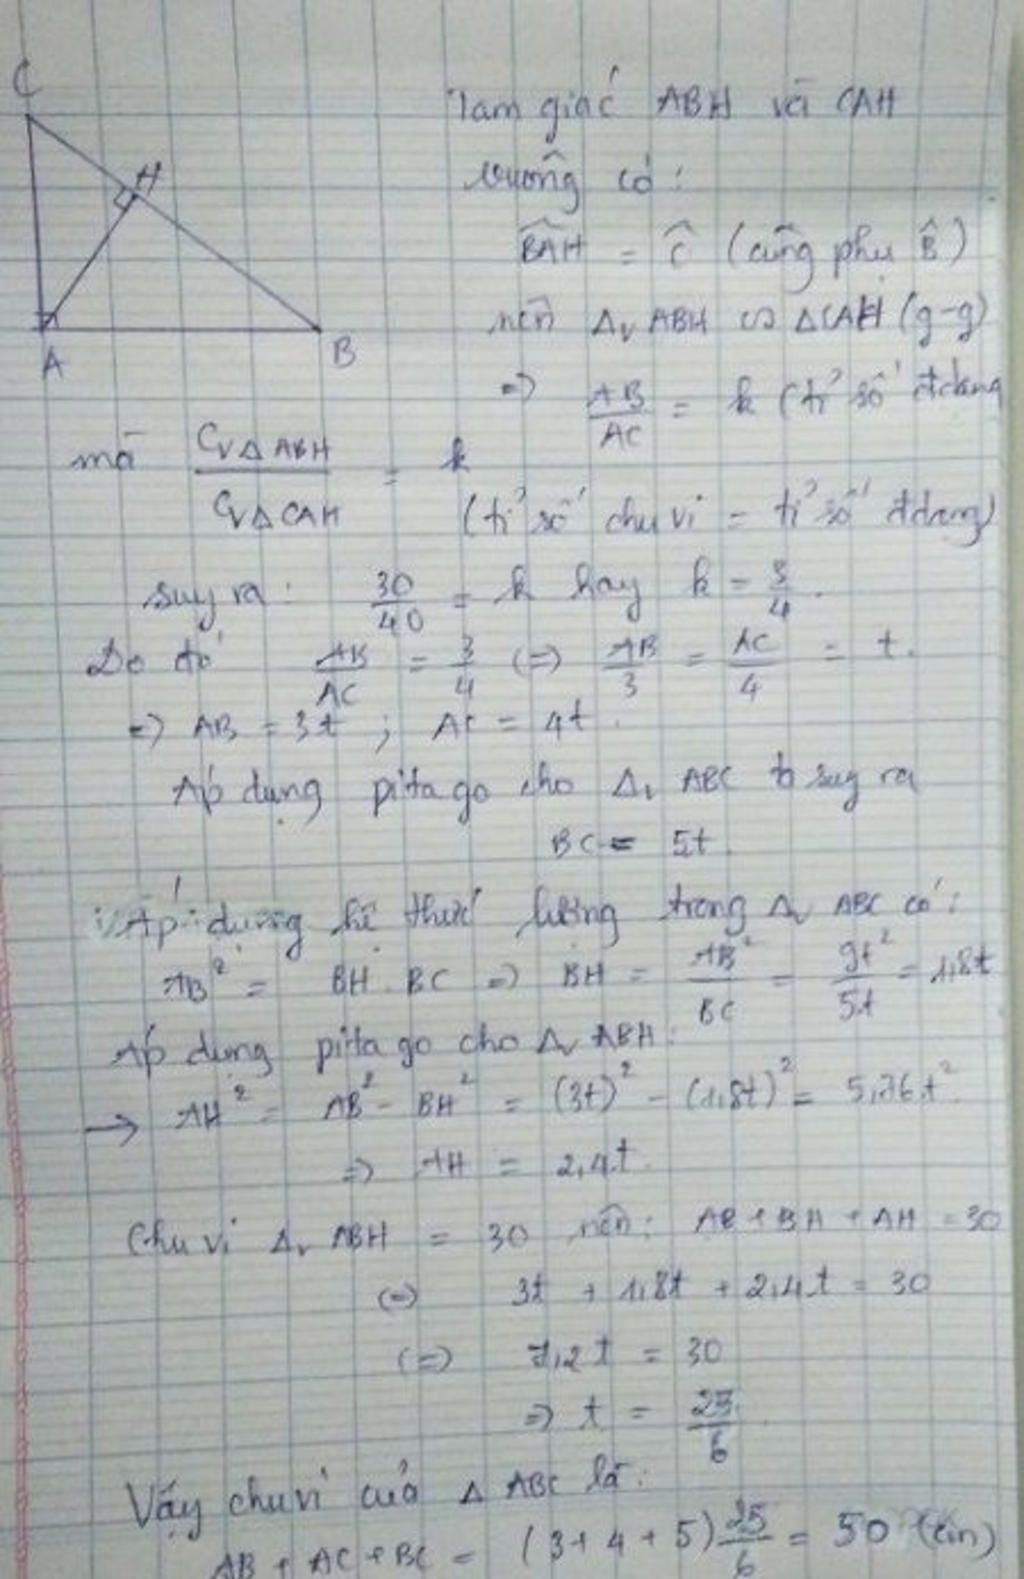 C
H
A
B
Tam giác ABH và CAH
vuông có:
BAH^ = C^ (cùng phụ B^)
nên Δv ABH ∽ ΔCAH (g-g)
=> AB/AC = k (tỉ số đdạng
mà CvΔABH/CvΔCAH = k
(tỉ số chu vi = tỉ số đdạng)
suy ra: 30/40 = k hay k = 3/4.
Do đó AB/AC = 3/4 (=) AB/3 = AC/4 = t.
=> AB = 3t ; AC = 4t.
Áp dụng pitago cho Δv ABC ta suy ra
BC = 5t.
Áp dụng hệ thức lượng trong Δv ABC có:
AB² = BH . BC => BH = AB²/BC = 9t²/5t = 1,8t
Áp dụng pitago cho Δv ABH:
→ AH² = AB² - BH² = (3t)² - (1,8t)² = 5,76t².
=> AH = 2,4t.
Chu vi Δv ABH = 30 nên: AB + BH + AH = 30
(=) 3t + 1,8t + 2,4t = 30
(=) 7,2t = 30
=> t = 25/6
Vậy chu vi của Δ ABC là:
AB + AC + BC = (3+4+5) 25/6 = 50 (cm)